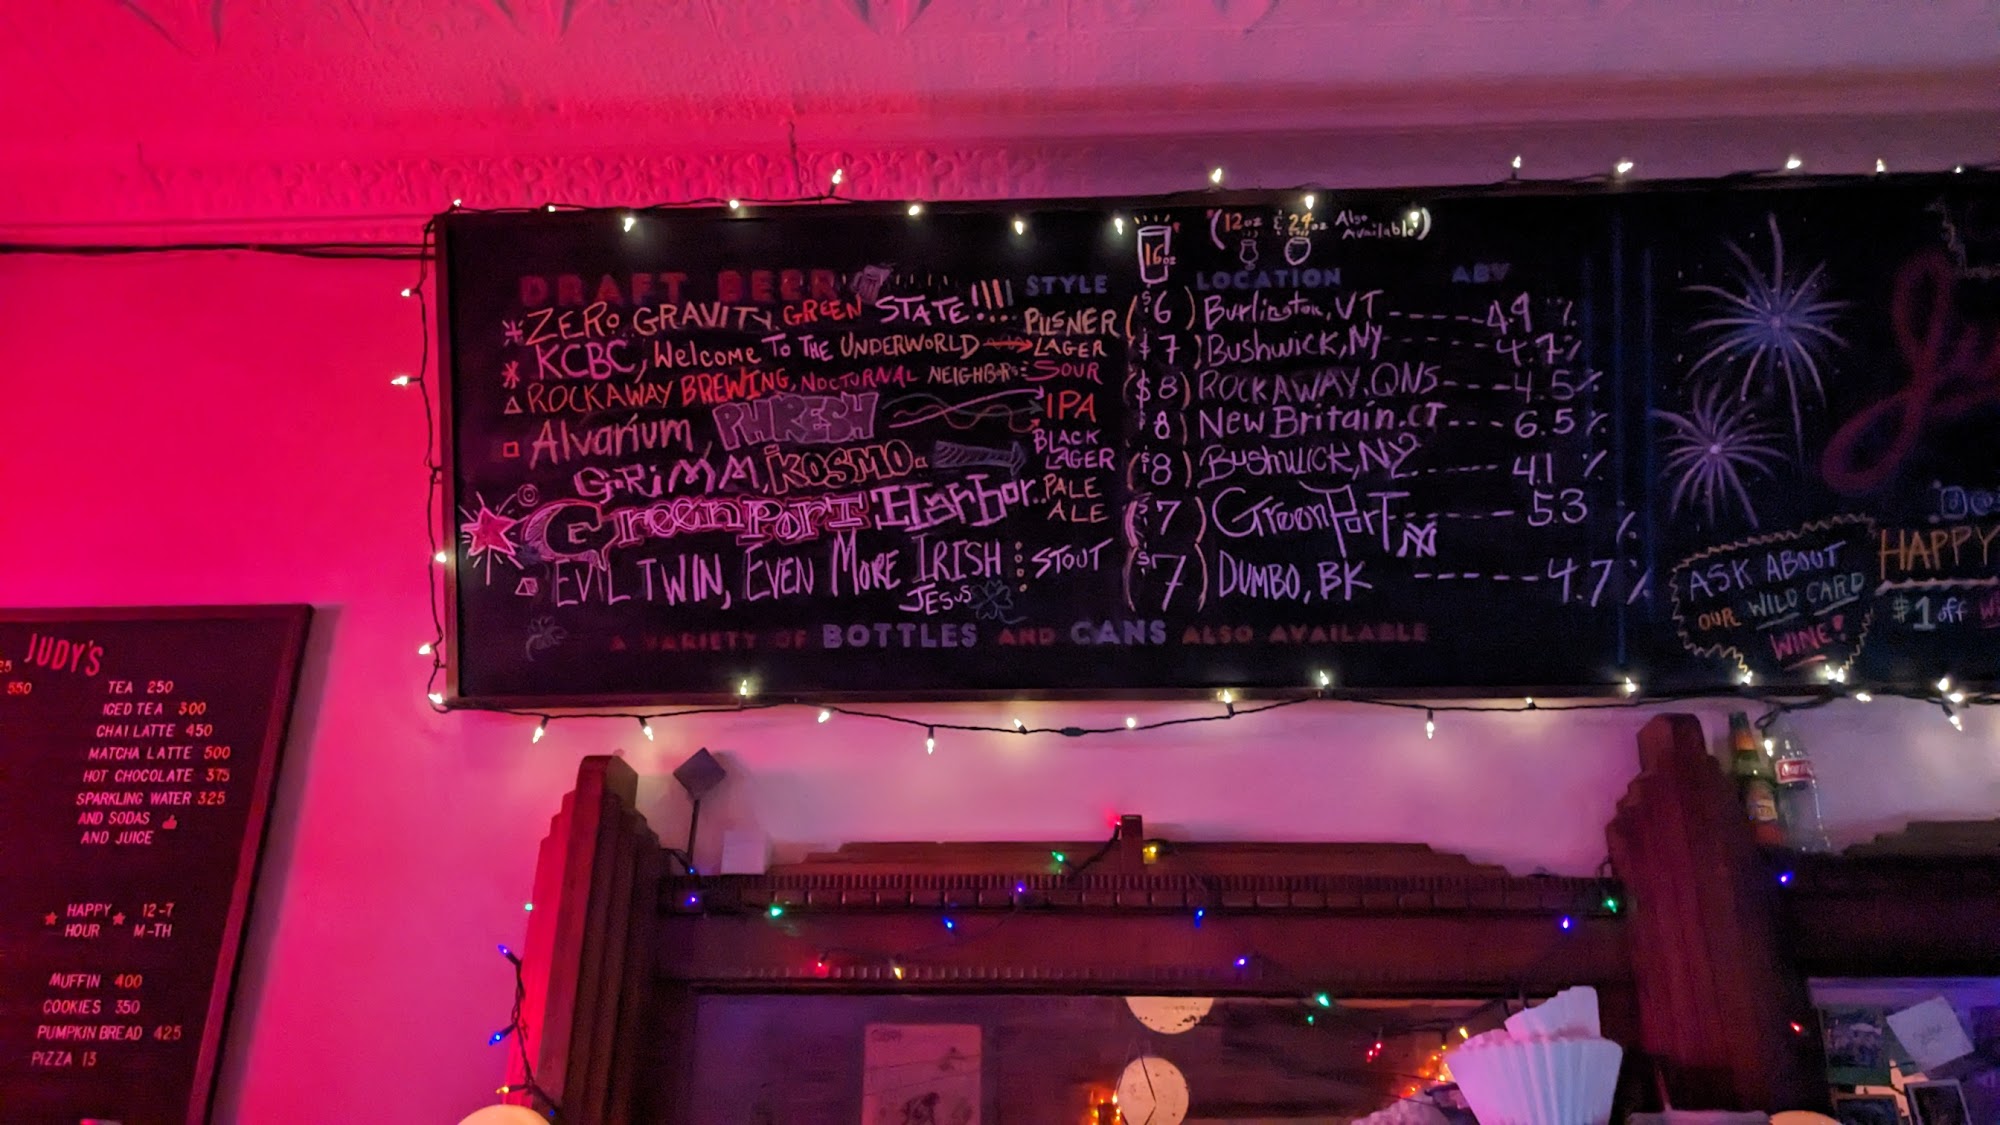 (12oz & 24oz Also Available)
16oz
DRAFT BEER STYLE LOCATION ABV
ZERO GRAVITY GREEN STATE!!!! PILSNER ($6) Burlington, VT ----- 4.9 %
KCBC, Welcome To THE UNDERWORLD LAGER ($7) Bushwick, NY ----- 4.7%
ROCKAWAY BREWING, NOCTURNAL NEIGHBORS: SOUR ($8) ROCKAWAY, QNS ---- 4.5%
Alvarium, PHRESH IPA ($8) New Britain, CT --- 6.5%
GRiMM, KOSMO BLACK LAGER ($8) Bushwick, NY ----- 4.1 %
GreenPorT Harbor.. PALE ALE ($7) GreenPorT, NY ------ 5.3 %
EVIL TWIN, EVEN MORE IRISH JESUS : STOUT ($7) DUMBO, BK ----- 4.7%
A VARIETY OF BOTTLES AND CANS ALSO AVAILABLE
ASK ABOUT
OUR WILD CARD
WINE!
HAPPY
$1 off
JUDY'S
550
TEA 250
ICED TEA 300
CHAI LATTE 450
MATCHA LATTE 500
HOT CHOCOLATE 375
SPARKLING WATER 325
AND SODAS
AND JUICE
HAPPY HOUR 12-7 M-TH
MUFFIN 400
COOKIES 350
PUMPKIN BREAD 425
PIZZA 13